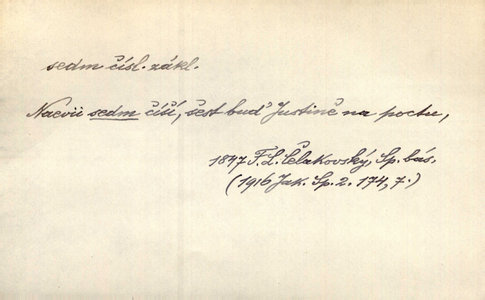 sedm čísl. zákl.
Naevii sedm číší, šest buď Justině na poctu,
1847 F. L. Čelakovský, Sp. bás.
(1916 Jak. Sp. 2. 174, 7.)